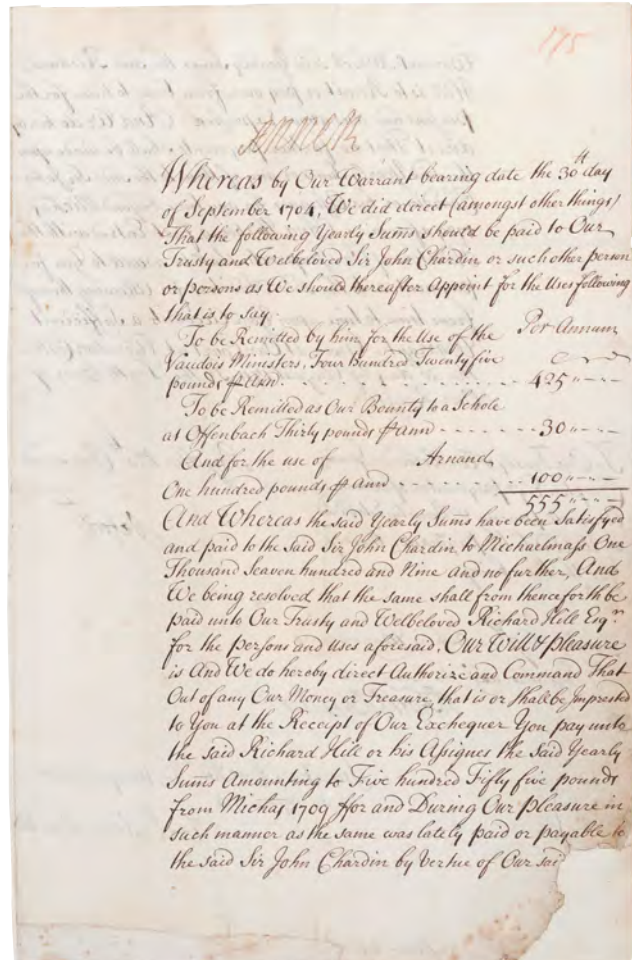 175
ANNE R
Whereas by Our Warrant bearing date the 30th day
of September 1704, We did direct (amongst other things)
That the following Yearly Sums should be paid to Our
Trusty and Welbeloved Sir John Chardin or such other person
or persons as We should thereafter Appoint for the Uses following
that is to say.
To be Remitted by him for the Use of the Per Annum
Vaudois Ministers, Four Hundred Twenty five
pounds ℔ Ann. - - - - - - - - - - 425 " - " -
To be Remitted as Our Bounty to a Schole
at Offenbach Thirty pounds ℔ Ann - - - - - - 30 " - " -
And for the use of Arnaud
One hundred pounds ℔ Ann - - - - - - - - 100 " - " -
555 " - " -
And Whereas the said Yearly Sums have been Satisfyed
and paid to the said Sir John Chardin to Michaelmass One
Thousand Seaven hundred and Nine and no further, And
We being resolved that the same shall from thenceforth be
paid unto Our Trusty and Welbeloved Richard Hill Esqr.
for the persons and uses aforesaid, Our Will & pleasure
is And We do hereby direct Authorize and Command That
Out of any Our Money or Treasure that is or shall be Imprested
to You at the Receipt of Our Exchequer You pay unto
the said Richard Hill or his Assignes the said Yearly
Sums Amounting to Five hundred Fifty five pounds
from Michās 1709 ffor and During Our pleasure in
such manner as the same was lately paid or payable to
the said Sir John Chardin by Vertue of Our said